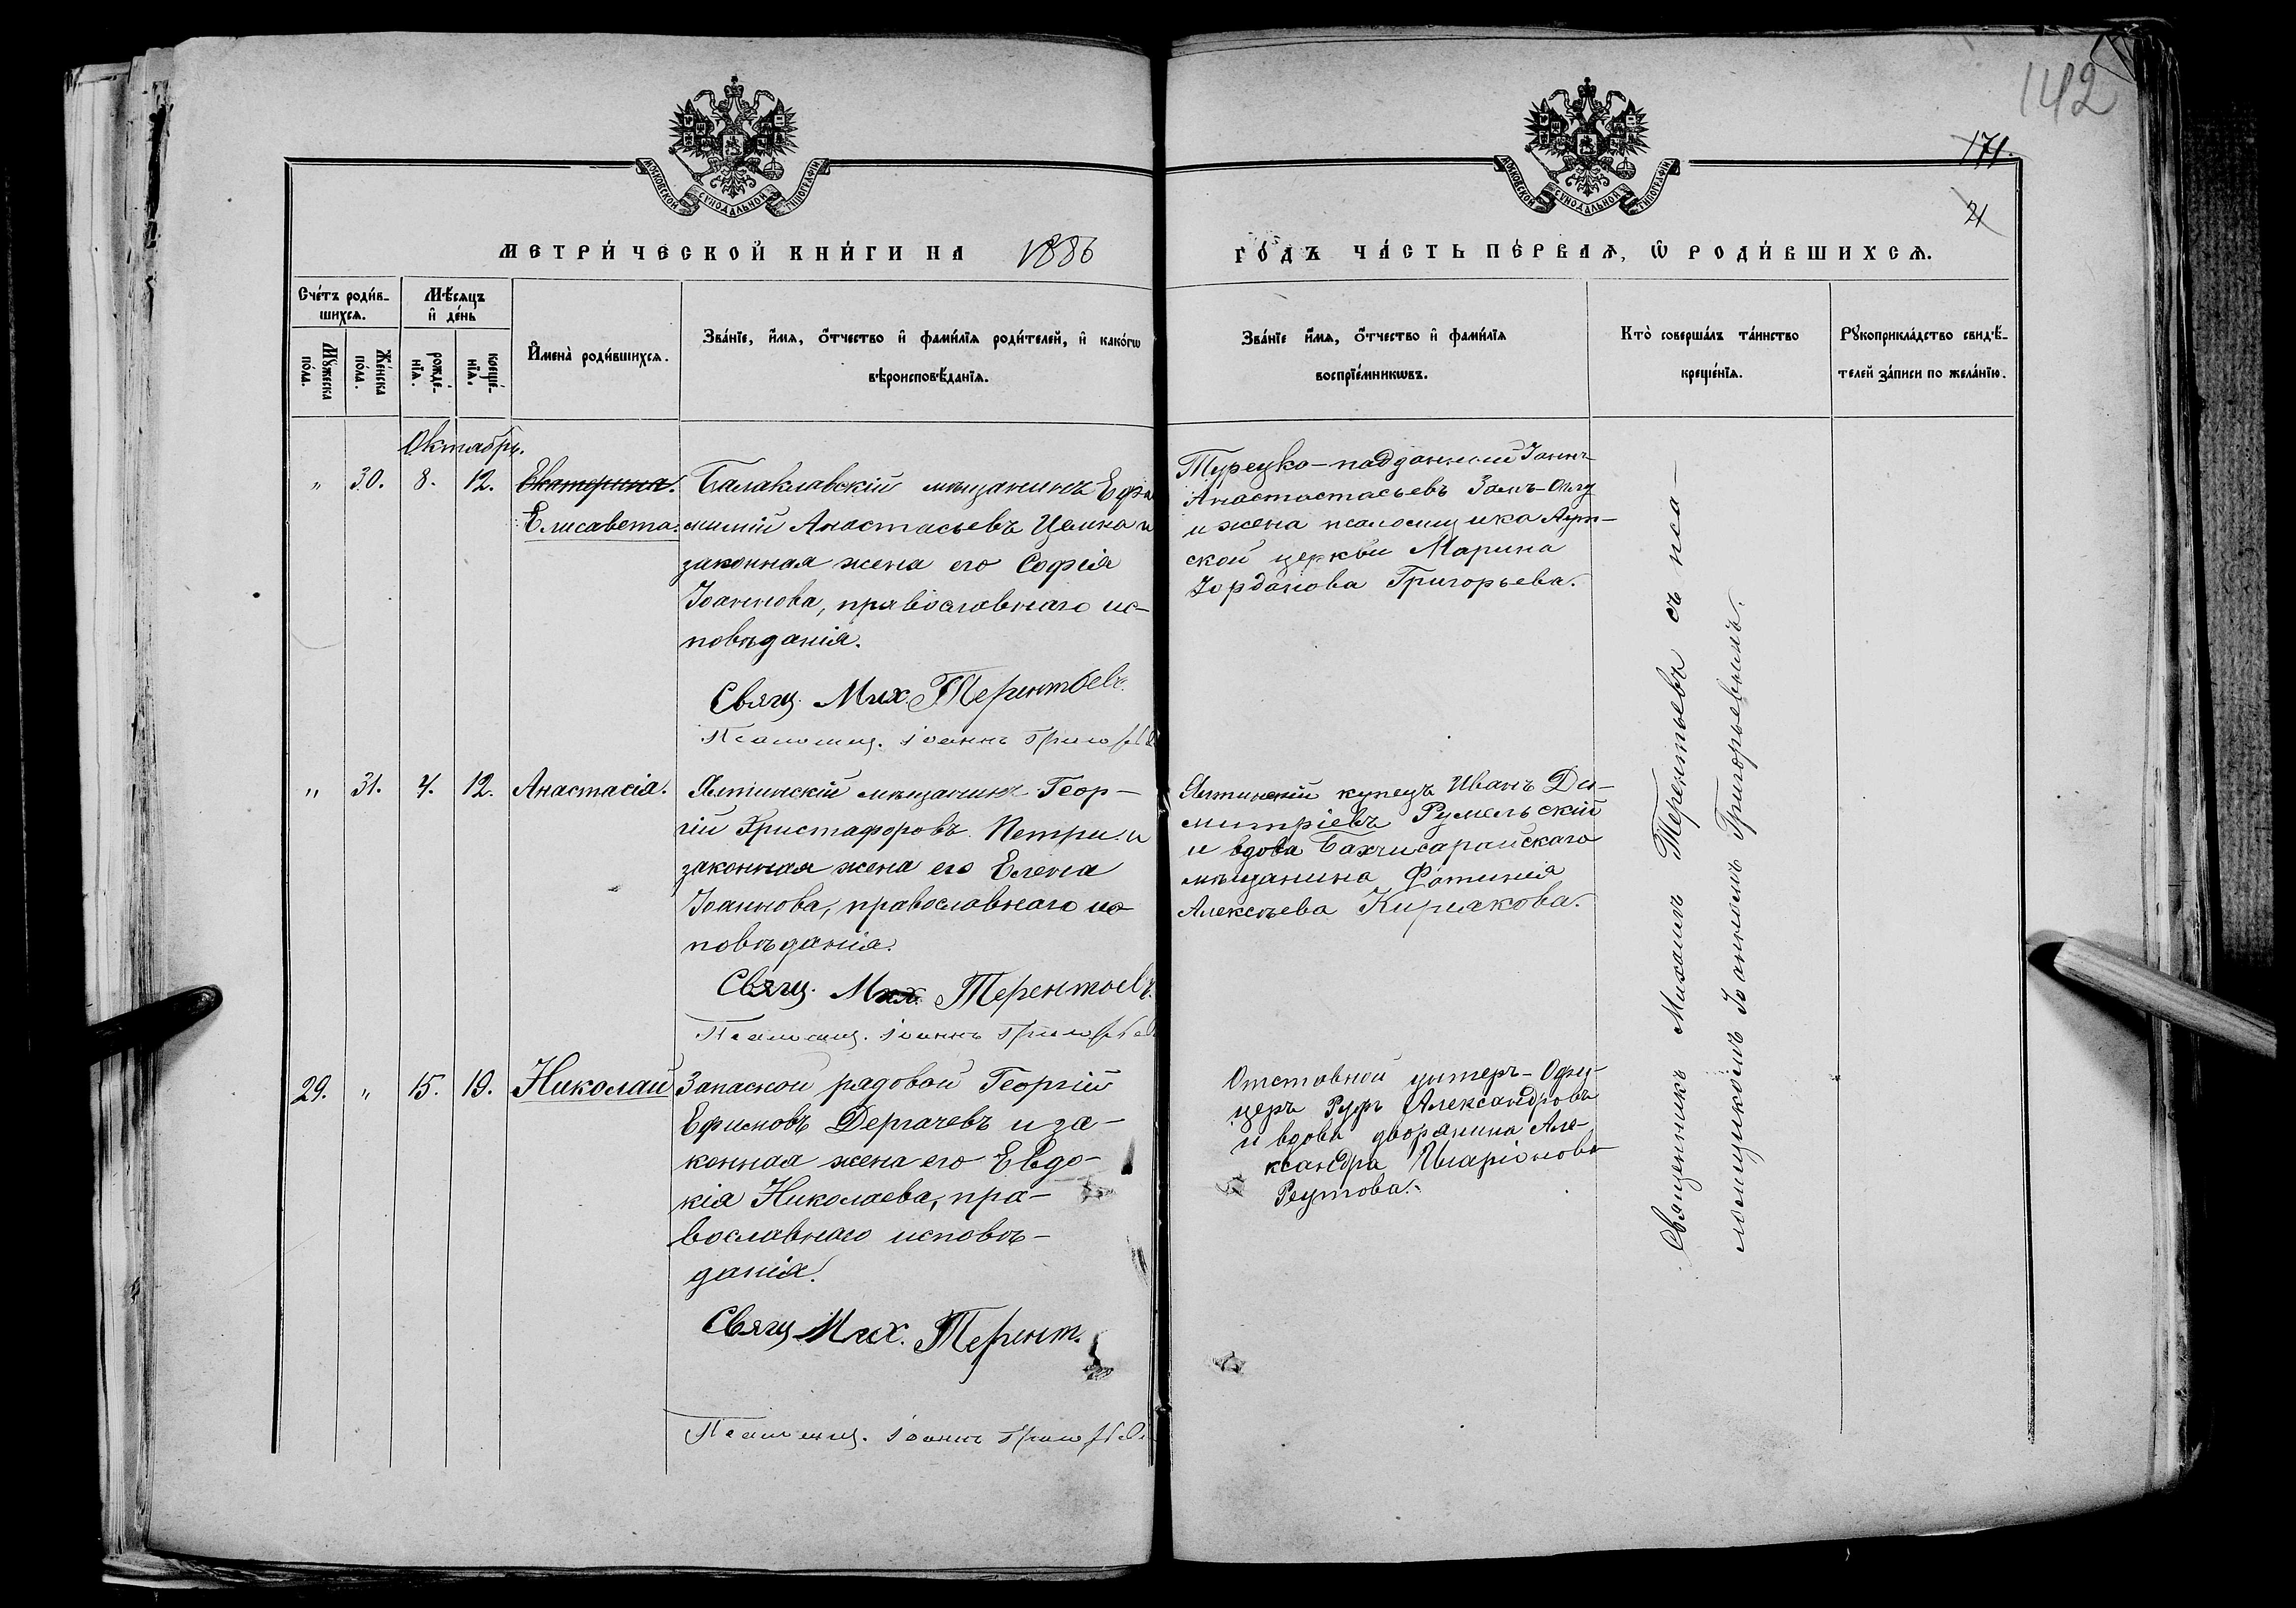 142
171.
21
МОСКОВСКОЙ СѴНОДАЛЬНОЙ ТИПОГРАФІИ
МОСКОВСКОЙ СѴНОДАЛЬНОЙ ТИПОГРАФІИ
МЕТРИ́ЧЕСКОЙ КНИ́ГИ НА 1886
ГО́ДЪ ЧА́СТЬ ПЕ́РВАѦ, Ѡ РОДИ́ВШИХСѦ.
Сче́тъ роди́в-
шихсѧ.
Мꙋ́жеска
по́ла.
Же́нска
по́ла.
Мѣ́сѧцъ
и҆ де́нь
рожде́-
нїѧ.
креще́-
нїѧ.
И҆мена̀ роди́вшихсѧ.
Зва́нїе, и҆́мѧ, ѻ҆́тчество и҆ фами́лїѧ роди́телей, и҆ како́гѡ
вѣроисповѣ́данїѧ.
Зва́нїе и҆́мѧ, ѻ҆́тчество и҆ фами́лїѧ
воспрїе́мникѡвъ.
Кто̀ соверша́лъ та́инство
креще́нїѧ.
Рꙋкоприкла́дство свидѣ́-
телей за́писи по жела́нїю.
Октябрь.
" 30. 8. 12. Екатерина.
Елисавета.
Балаклавскій мѣщанинъ Евѳи
мій Анастасьевъ Цамко и
законная жена его Софія
Іоаннова, православнаго ис-
повѣданія.
Свящ. Мих. Терентьевъ.
Псаломщ. Іоаннъ Григорьев
Турецко-подданный Іаннъ
Анастасьевъ
и жена псаломщика Аут-
ской церкви Марина
Іорданова Григорьева.
" 31. 4. 12. Анастасія.
Ялтинскій мѣщанинъ Геор-
гій Христофоровъ Петри и
законная жена его Елена
Іоаннова, православнаго ис
повѣданія.
Свящ. Мих. Терентьевъ.
Псаломщ. Іоаннъ Григорьев
Ялтинскій купецъ Иванъ Ди-
митріевъ Румельскій
и вдова Бахчисарайскаго
мѣщанина Фотинія
Алексѣева Кирьякова.
29. " 15. 19. Николай
Запасной рядовой Георгій
Ефимовъ Дергачевъ и за-
конная жена его Евдо-
кія Николаева, пра-
вославнаго исповѣ-
данія.
Свящ Мих. Терент.
Псаломщ. Іоаннъ Григорьев.
Отставной унтеръ-Офи-
церъ Руфъ Александровъ
и вдова дворянина Але-
ксандра Иларіонова
Реутова.
Священникъ Михаилъ Терентьевъ съ пса-
ломщикомъ Іоанномъ Григорьевымъ.